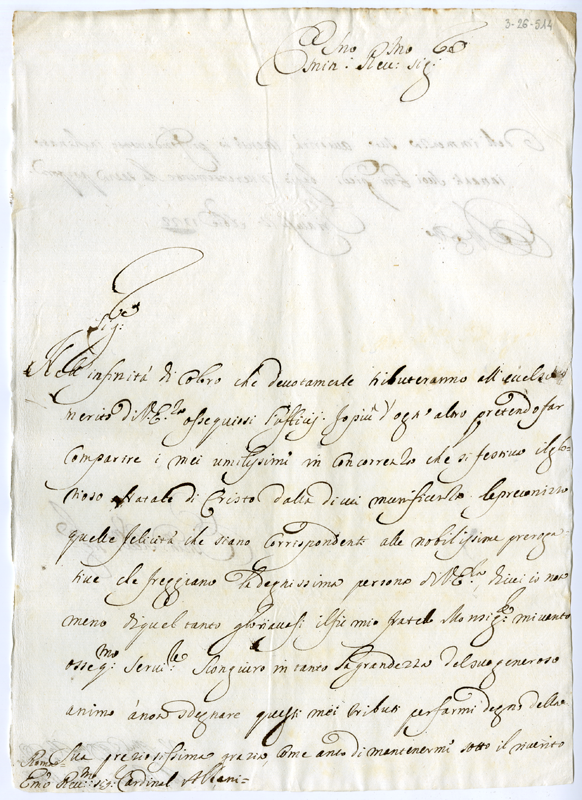 3-26-514
Emin: Reu: sig:
Sig:
Nell' infinità di coloro che deuotamente tributeranno all' eccelso
merito di V. E. ossequiosi uffitij, Io più d'ogn' altro pretendo far
comparire i miei umilissimi in concorrenza che si festiuo il glo-
rioso Natale di Cristo dalla di cui munificenza le preconizzo
quelle felicità che siano correspondenti alle nobilissime preroga-
tiue che freggiano la degnissima persona di V. E. Di cui io non
meno di quel tanto gloriauasi il fù mio fratello Monsig: mi uanto
osseq: seru: Scongiuro in tanto la grandezza del suo generoso
animo à non sdegnare questi miei tributi per farmi degno della
Sua preziosissima grazia come anco di mantenermi sotto il
Roma
Em Reu: sig: Cardinal Albani=